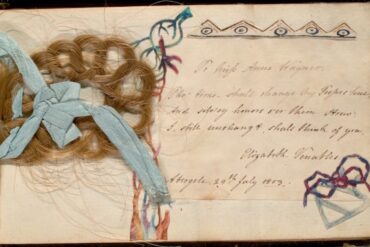 To Miss Anne Wagner.
Tho' time shall change thy
And silvery honors o'er them
I, still unchang'd, shall think of you,
Elizabeth Venables
Abergele, 29th July 1803.